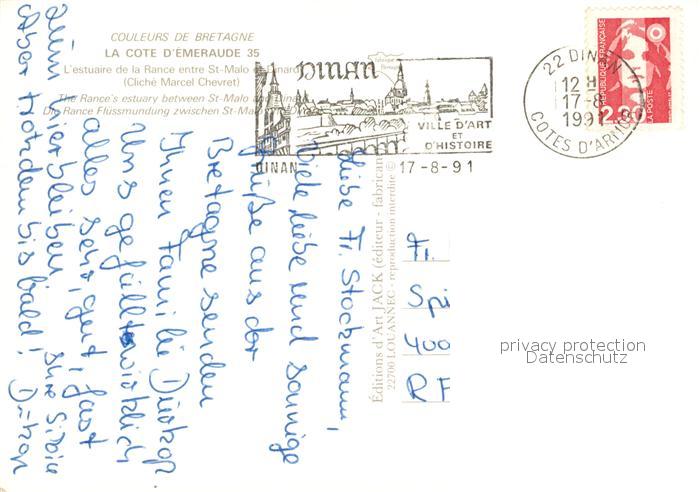 COULEURS DE BRETAGNE
LA COTE D'ÉMERAUDE 35
L'estuaire de la Rance entre St-Malo et Dinard
(Cliché Marcel Chevret)
The Rance's estuary between St-Malo and
Die Rance Flüssmundung zwischen St-Malo
DINAN
VILLE D'ART
ET
D'HISTOIRE
DINAN
17-8-91
22 DINAN
12 H
17-8
1991
COTES D'ARMOR
REPUBLIQUE FRANÇAISE
2,30
LA POSTE
Éditions d'Art JACK (éditeur - fabricant
22700 LOUANNEC - reproduction interdite ©
Liebe Fr. Stockmann,
Viele liebe und sonnige
Grüße aus der
Bretagne senden
Ihnen Familie Dürkop
Uns gefällt wirklich
alles sehr gut, fast
zum hierbleiben. Ihre
Aber trotzdem bis bald! Dürkop
Fr.
Spi
400
RF
privacy protection
Datenschutz